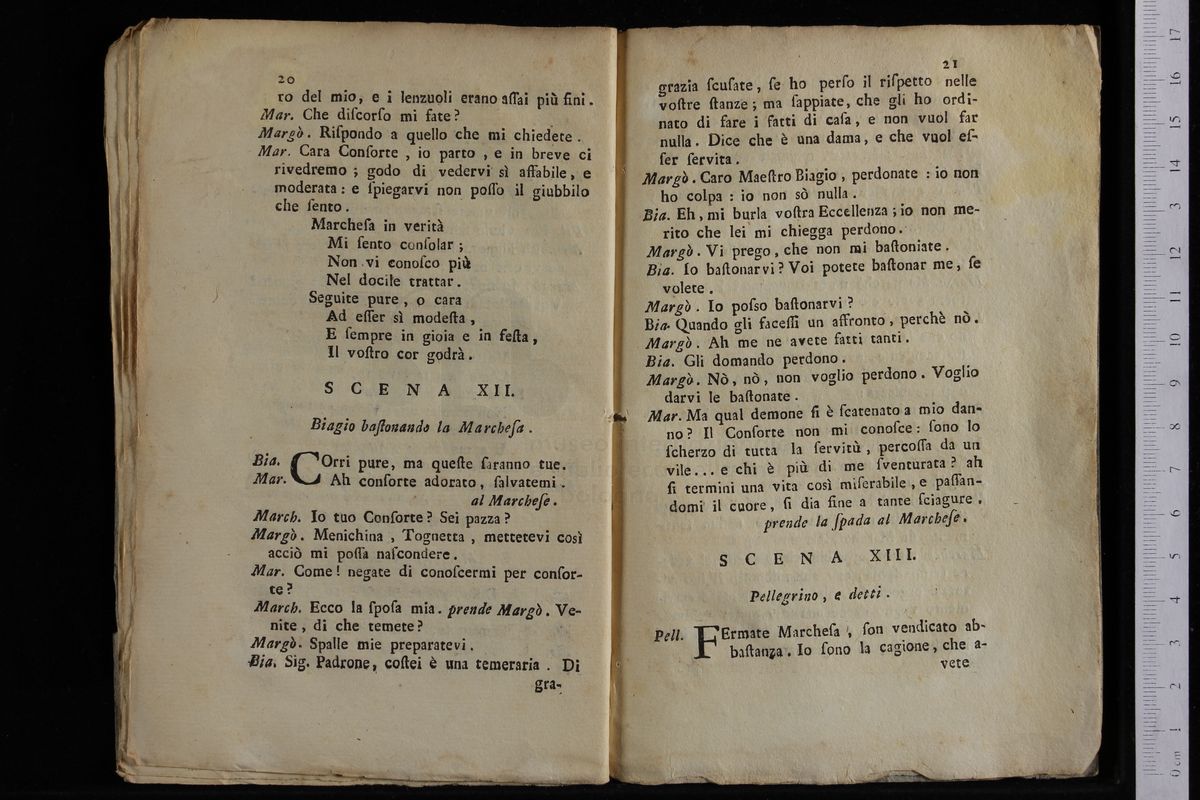 20
ro del mio, e i lenzuoli erano aſſai più fini.
Mar. Che diſcorſo mi fate?
Margò. Riſpondo a quello che mi chiedete.
Mar. Cara Conſorte, io parto, e in breve ci
rivedremo; godo di vedervi sì affabile, e
moderata: e ſpiegarvi non poſſo il giubbilo
che ſento.
Marcheſa in verità
Mi ſento conſolar;
Non vi conoſco più
Nel docile trattar.
Seguite pure, o cara
Ad eſſer sì modeſta,
E ſempre in gioia e in feſta,
Il voſtro cor godrà.
SCENA XII.
Biagio baſtonando la Marcheſa.
Bia. COrri pure, ma queſte ſaranno tue.
Mar. Ah conſorte adorato, ſalvatemi.
al Marcheſe.
March. Io tuo Conſorte? Sei pazza?
Margò. Menichina, Tognetta, mettetevi così
acciò mi poſſa naſcondere.
Mar. Come! negate di conoſcermi per conſor-
te?
March. Ecco la ſpoſa mia. prende Margò. Ve-
nite, di che temete?
Margò. Spalle mie preparatevi.
Bia. Sig. Padrone, coſtei è una temeraria. Di
gra-
21
grazia ſcuſate, ſe ho perſo il riſpetto nelle
voſtre ſtanze; ma ſappiate, che gli ho ordi-
nato di fare i fatti di caſa, e non vuol far
nulla. Dice che è una dama, e che vuol eſ-
ſer ſervita.
Margò. Caro Maeſtro Biagio, perdonate: io non
ho colpa: io non sò nulla.
Bia. Eh, mi burla voſtra Eccellenza; io non me-
rito che lei mi chiegga perdono.
Margò. Vi prego, che non mi baſtoniate.
Bia. Io baſtonarvi? Voi potete baſtonar me, ſe
volete.
Margò. Io poſso baſtonarvi?
Bia. Quando gli faceſſi un affronto, perchè nò.
Margò. Ah me ne avete fatti tanti.
Bia. Gli domando perdono.
Margò. Nò, nò, non voglio perdono. Voglio
darvi le baſtonate.
Mar. Ma qual demone ſi è ſcatenato a mio dan-
no? Il Conſorte non mi conoſce: ſono lo
ſcherzo di tutta la ſervitù, percoſſa da un
vile... e chi è più di me ſventurata? ah
ſi termini una vita così miſerabile, e paſſan-
domi il cuore, ſi dia fine a tante ſciagure.
prende la ſpada al Marcheſe.
SCENA XIII.
Pellegrino, e detti.
Pell. FErmate Marcheſa, ſon vendicato ab-
baſtanza. Io ſono la cagione, che a-
vete
17
16
15
14
13
12
11
10
9
8
7
6
5
4
3
2
1
0 cm